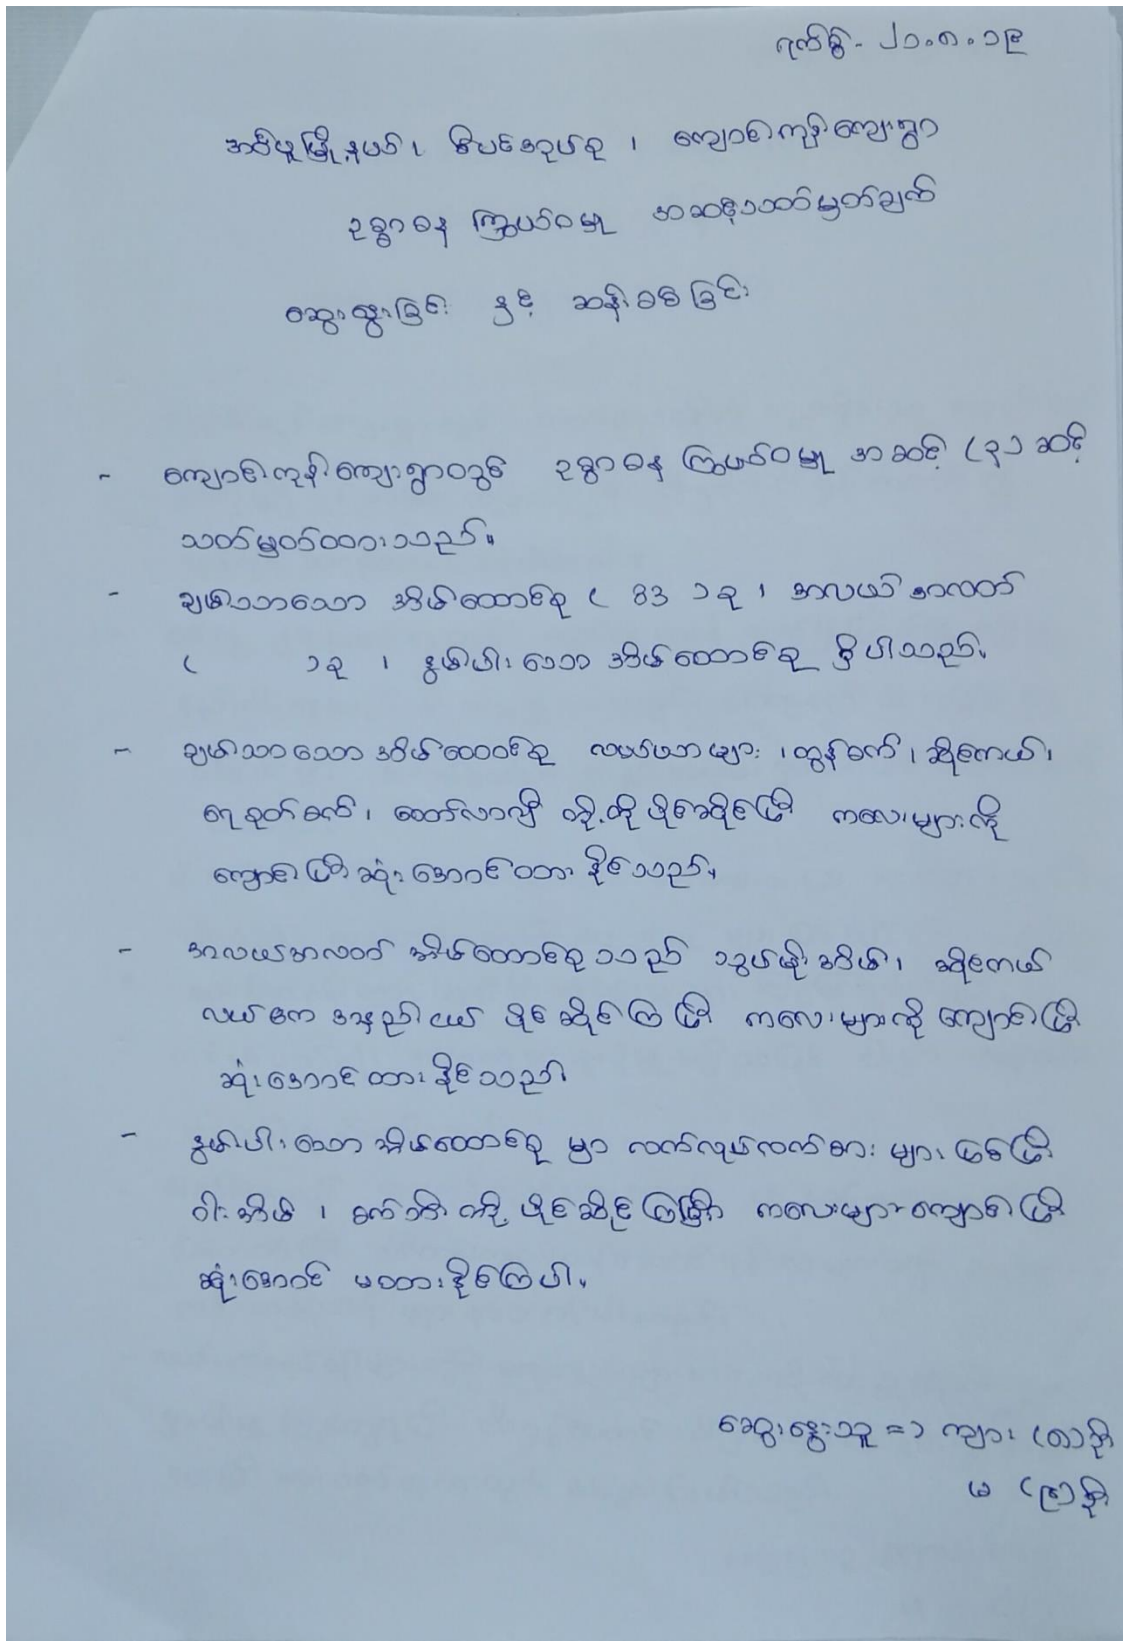 ရက်စွဲ - ၂၁.၈.၁၉
အမ်မြို့နယ်၊ ကျောင်းကုန်းကျေးရွာ
ဥစ္စာဓန ကြွယ်ဝမှု အဆင့်သတ်မှတ်ချက်
ဆွေးနွေးခြင်း နှင့် ဆန်းစစ်ခြင်း
- ကျောင်းကုန်းကျေးရွာတွင် ဥစ္စာဓန ကြွယ်ဝမှု အဆင့် (၃) ဆင့်
သတ်မှတ်ထားသည်။
- ချမ်းသာသော အိမ်ထောင်စု ( 83 ) ခု ၊ အလယ်အလတ်
( ) ခု ၊ နွမ်းပါးသော အိမ်ထောင်စု ရှိပါသည်။
- ချမ်းသာသော အိမ်ထောင်စု လယ်ယာများ ၊ ထွန်စက် ၊ ဆိုင်ကယ် ၊
ရေစုတ်စက် ၊ ထော်လာဂျီ တို့ကို ပိုင်ဆိုင်ပြီး ကလေးများကို
ကျောင်းပြီးဆုံးအောင်ထားနိုင်သည်။
- အလယ်အလတ် အိမ်ထောင်စုသည် သွပ်မိုးအိမ် ၊ ဆိုင်ကယ်
လယ်ဧက အနည်းငယ် ပိုင်ဆိုင်ကြပြီး ကလေးများကို ကျောင်းပြီး
ဆုံးအောင်ထားနိုင်သည်။
- နွမ်းပါးသော အိမ်ထောင်စု မှာ လက်လုပ်လက်စား များ ဖြစ်ပြီး
ဝါးအိမ် ၊ စက်ဘီး တို့ ပိုင်ဆိုင်ကြပြီး ကလေးများကျောင်းပြီး
ဆုံးအောင် မထားနိုင်ကြပါ။
ဆွေးနွေးသူ = ကျား (၈) ဦး
မ (၉) ဦး